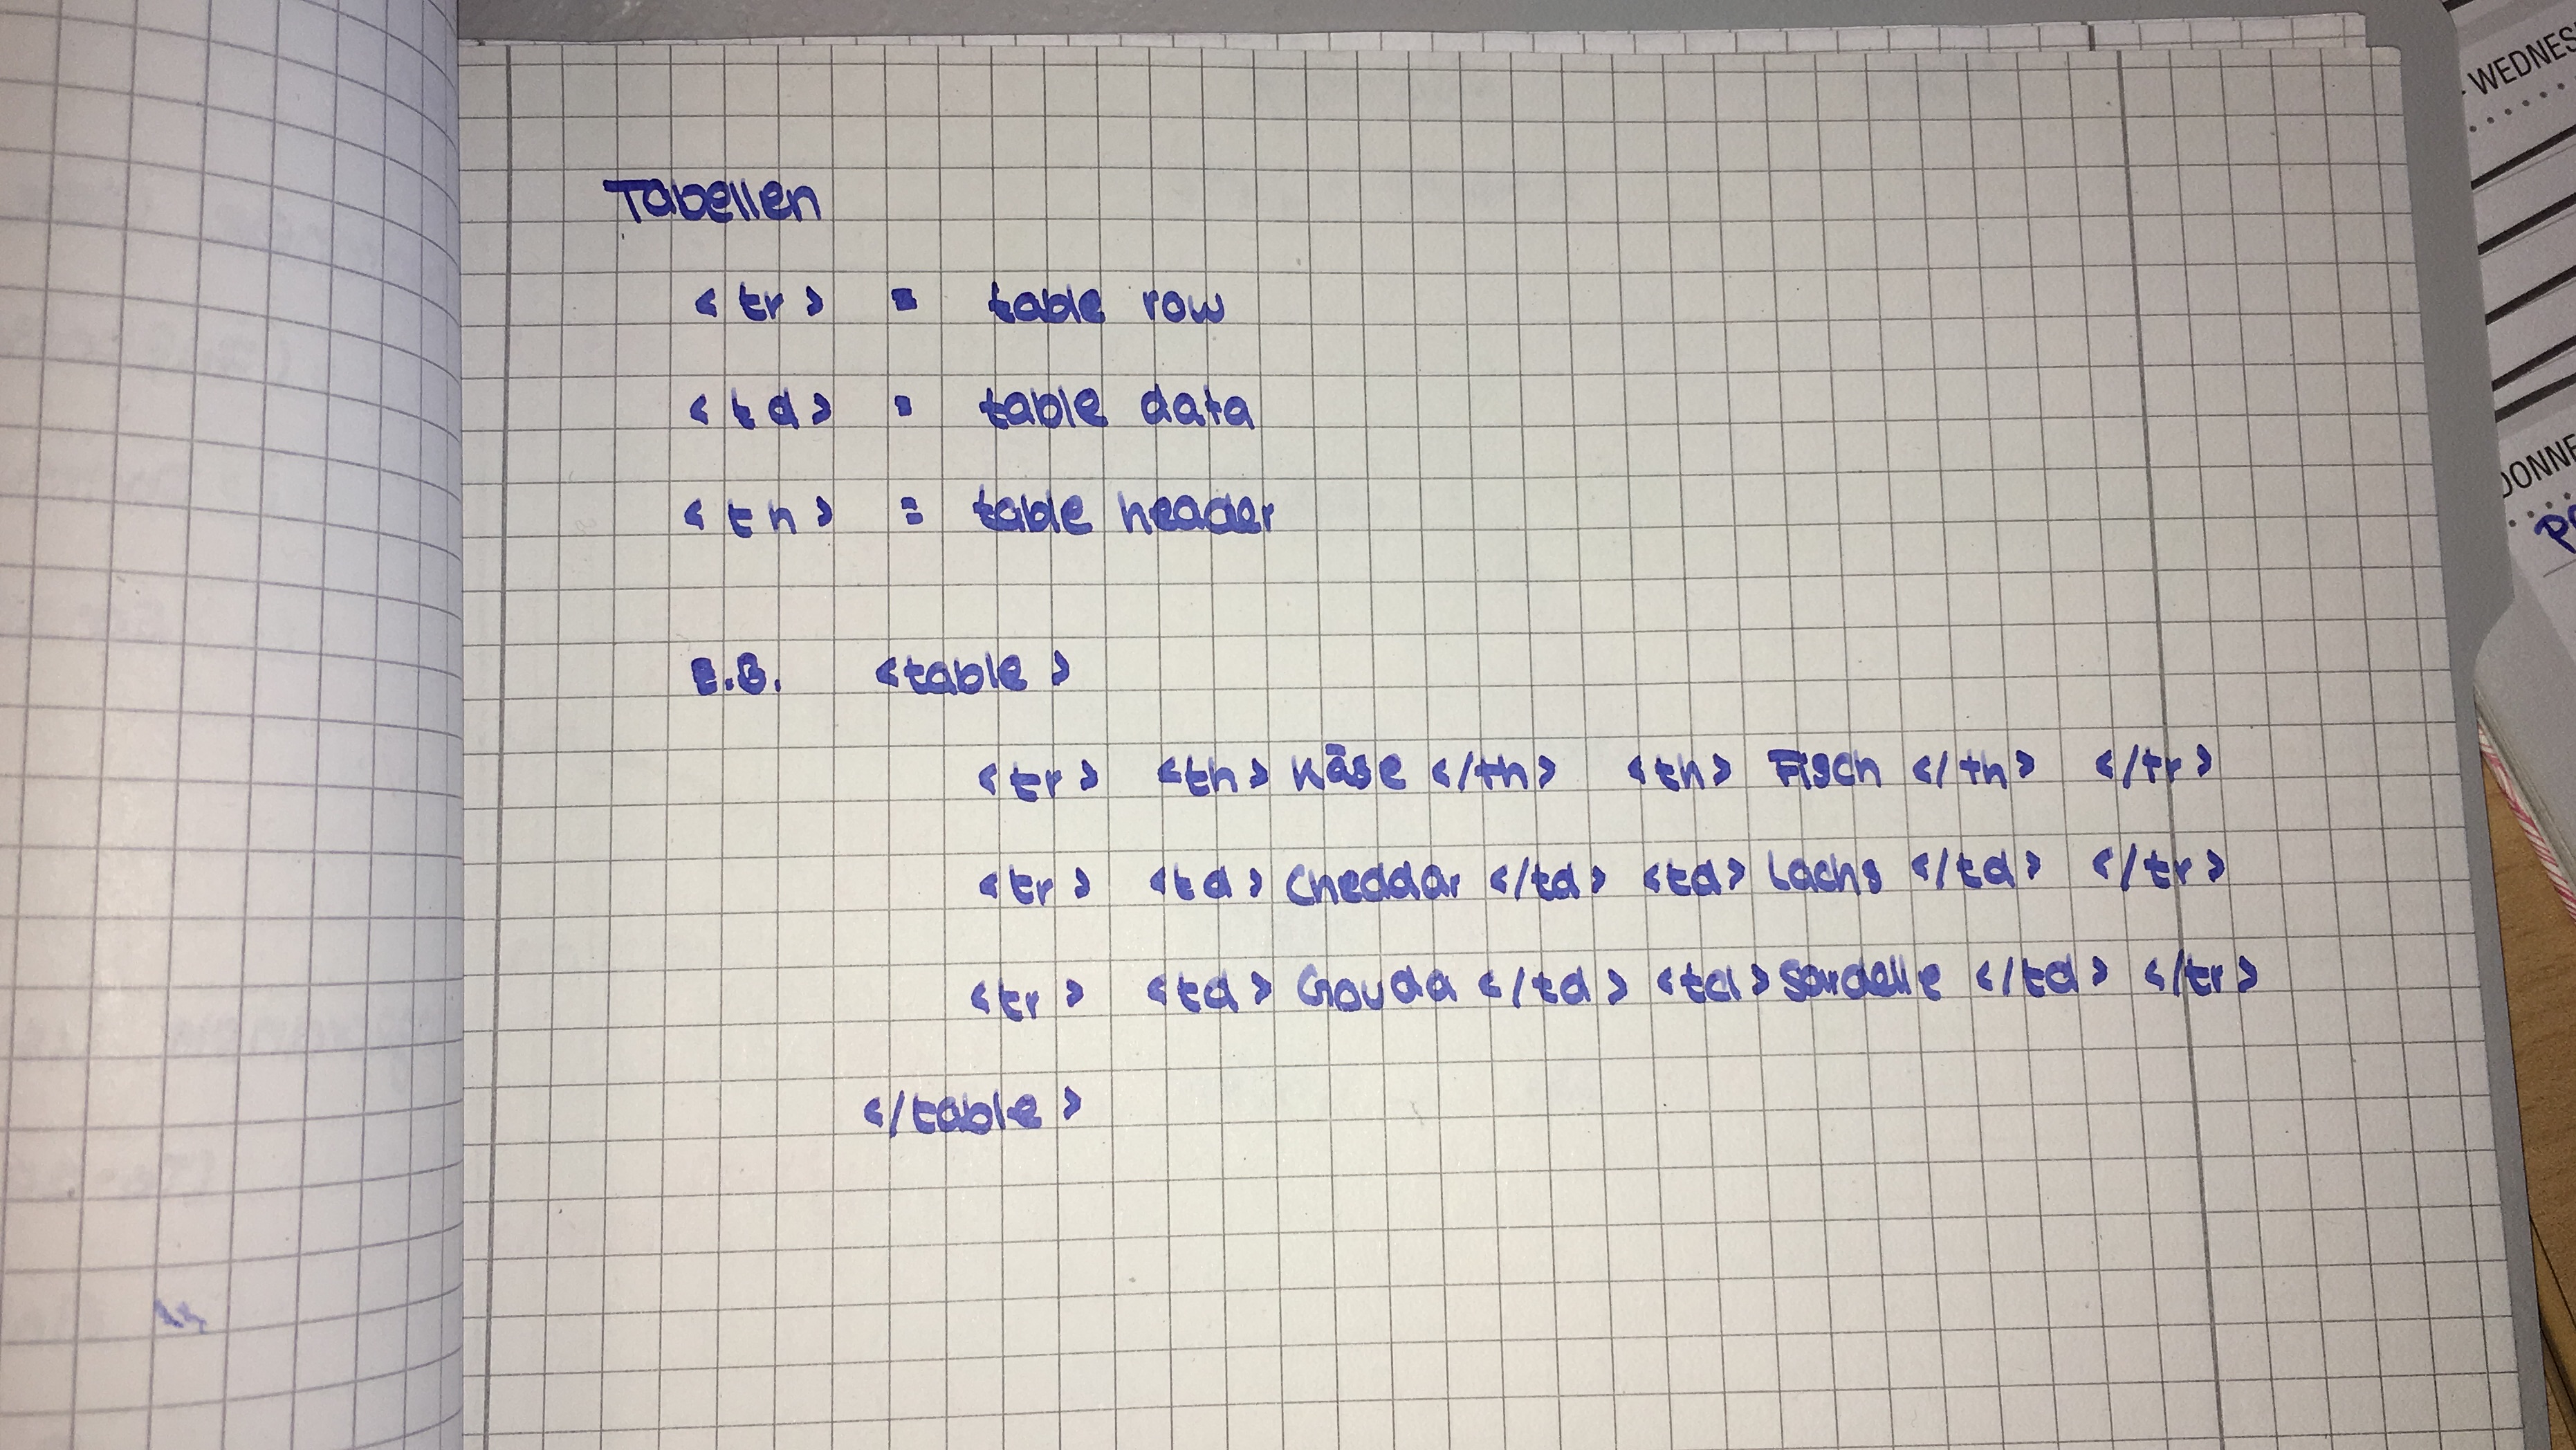 Tabellen
<tr> = table row
<td> = table data
<th> = table header
E.G. <table>
<tr> <th> Käse </th> <th> Fisch </th> </tr>
<tr> <td> Cheddar </td> <td> Lachs </td> </tr>
<tr> <td> Gouda </td> <td> Sardelle </td> </tr>
</table>